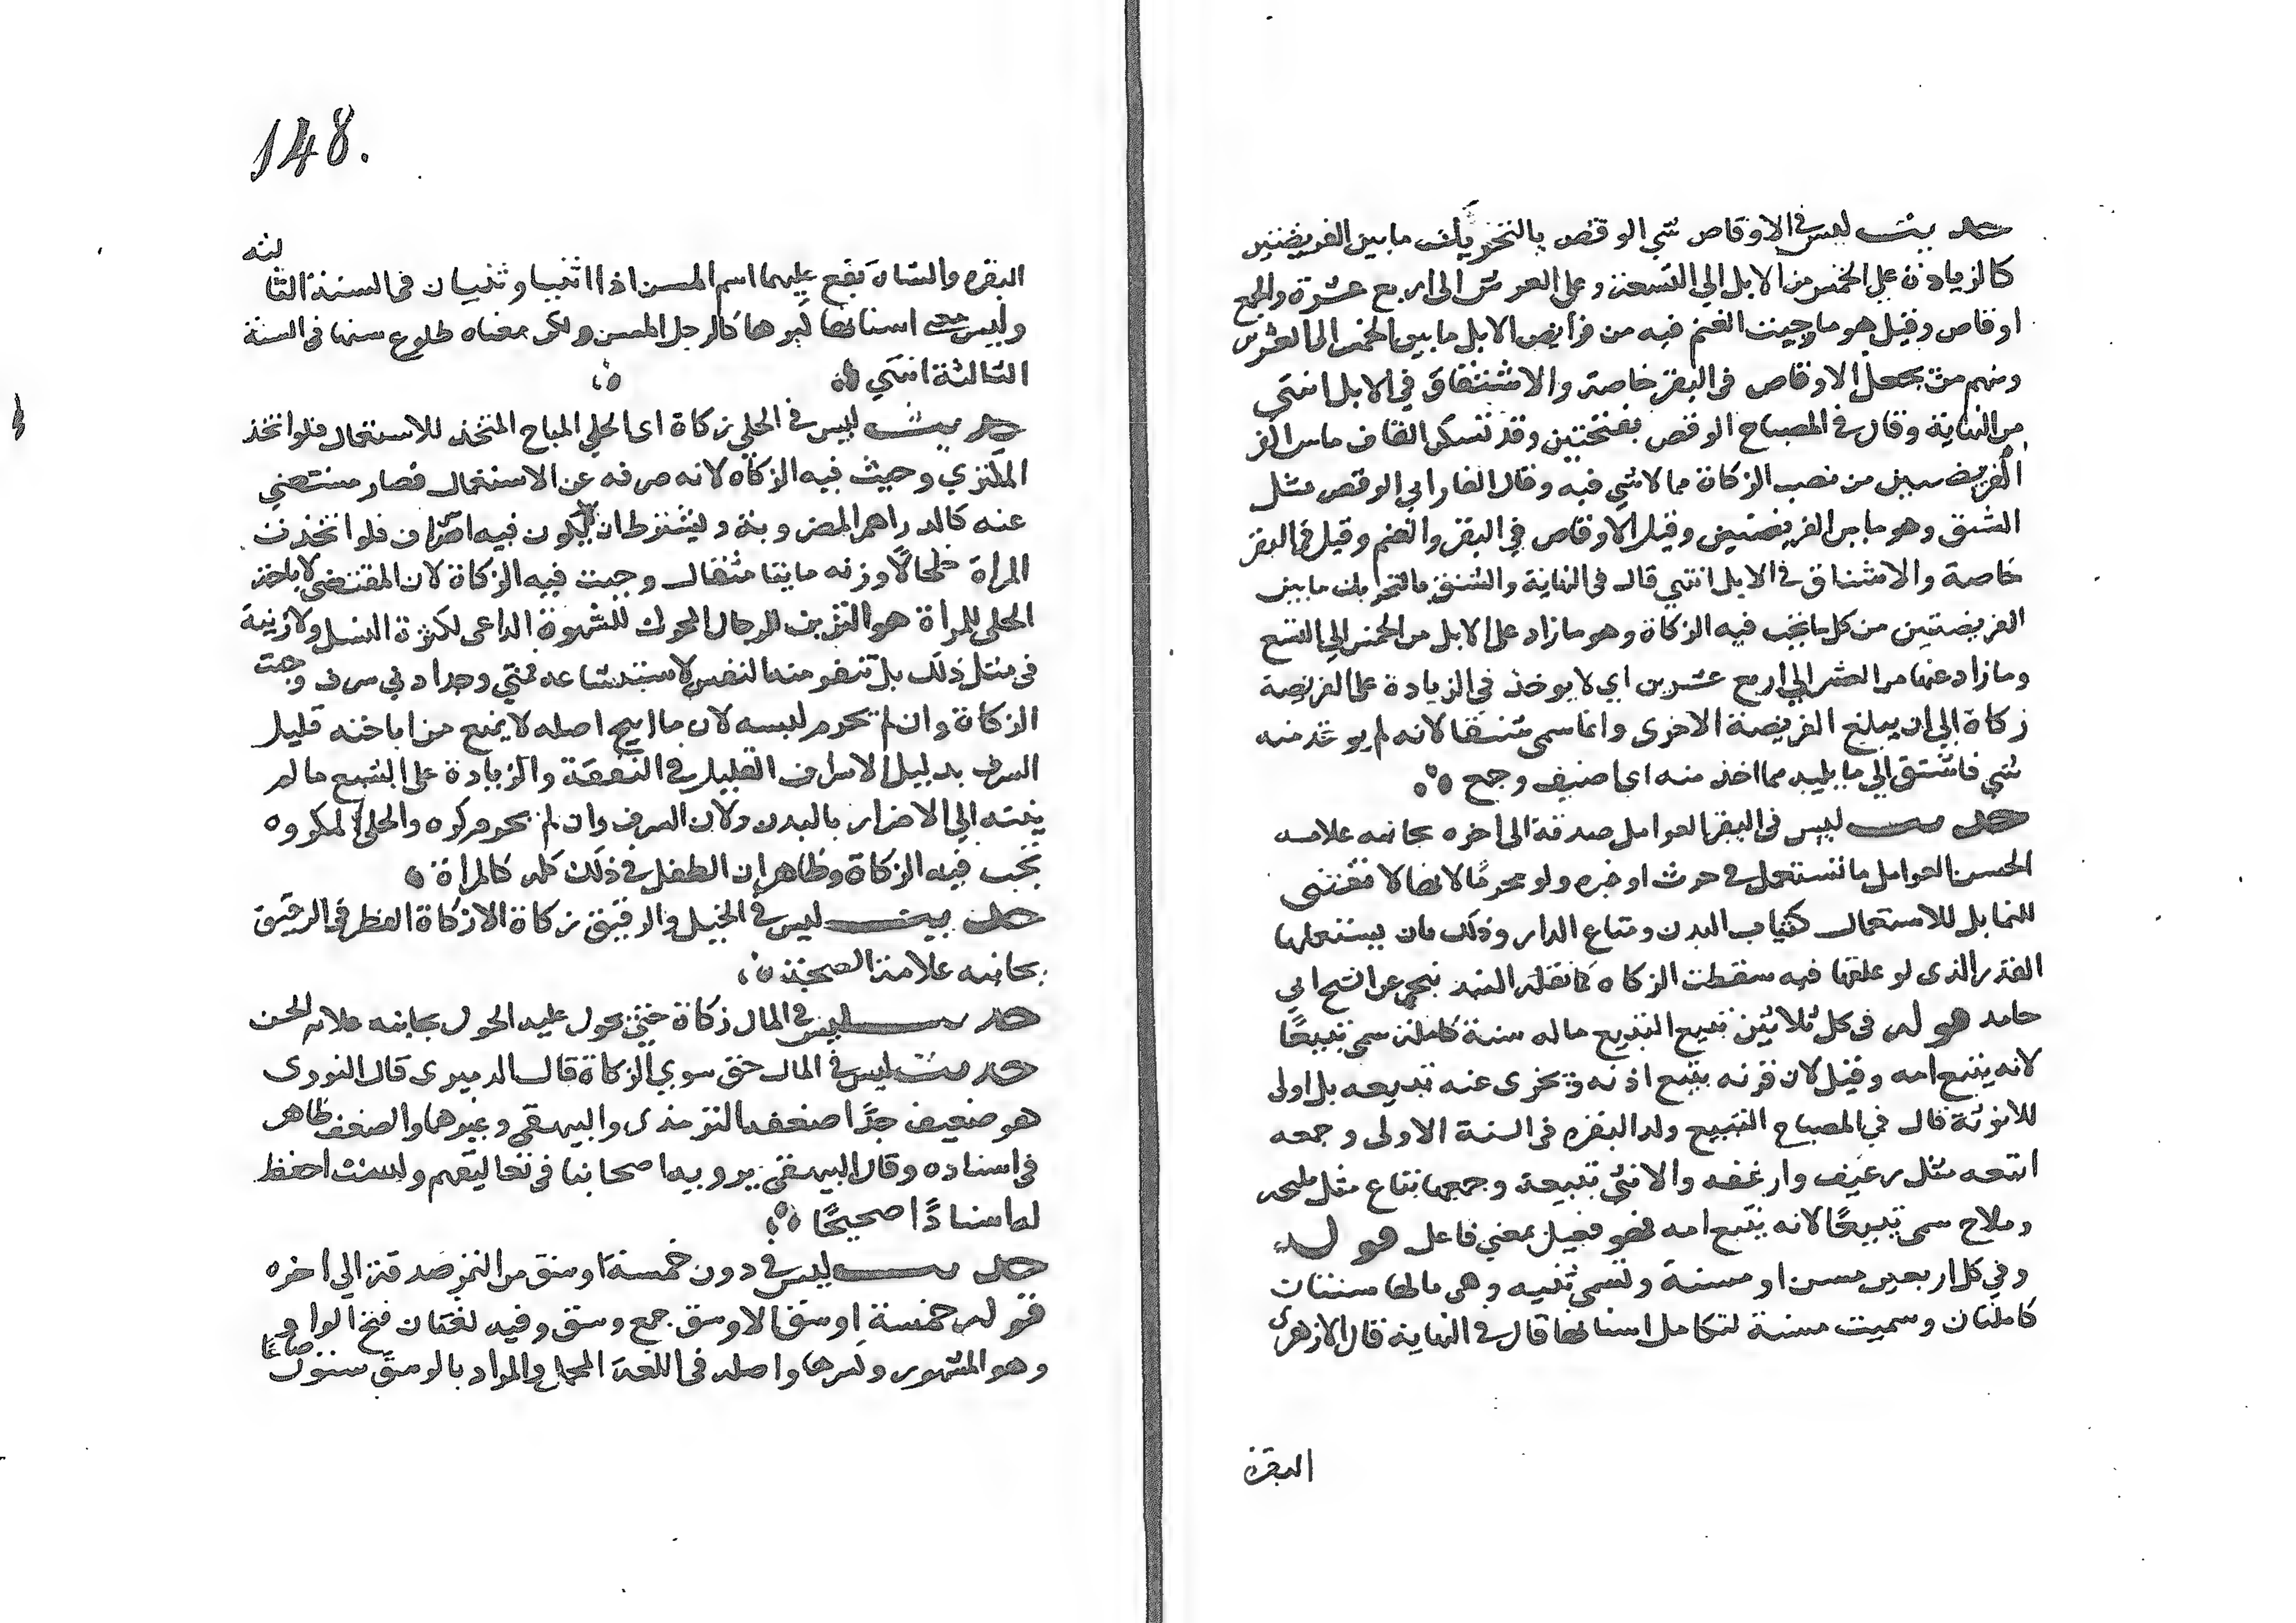 حديث ليس في الاوقاص شي الوقص بالتحريك ما بين الفريضتين
كالزيادة على الخمس من الابل الي التسعة وعلى العشر الى اربع عشرة والجمع
اوقاص وقيل هو ما وجبت الغنم فيه من فرايض الابل ما بين الخمس الى العشرين
ومنهم من يجعل الاوقاص في البقر خاصة والاشناق في الابل انتهى
من النهاية وقال في المصباح الوقص بفتحتين وقد تسكن القاف ما بين
الفريضتين من نصب الزكاة مما لا شي فيه وقال الفارابي الوقص مثل
الشنق وهو ما بين الفريضتين وقيل الاوقاص في البقر والغنم وقيل في البقر
خاصة والاشناق في الابل انتهي قال في النهاية والشنق بالتحريك ما بين
الفريضتين من كل ما تجب فيه الزكاة وهو ما زاد على الابل من الخمس الي التسع
وما زاد عنها من العشر الي اربع عشرين اي لا يوخذ في الزيادة على الفريضة
زكاة الي ان يبلغ الفريضة الاخرى وانما سمى شنقا لانه لم يوخذ منه
شي فاشنق الي ما يليه مما اخذ منه اي اضيف وجمع
حديث ليس في البقر العوامل صدقة الى اخره بجانبه علامة
الحسن العوامل ما تستعمل في حرث او غيره ولو محرمًا لانها لا تقتنى
للنما بل للاستعمال كثياب البدن ومتاع الدار وذلك بان يستعملها
القدر الذى لو علفها فيه سقطت الزكاه كما نقله البندنيجي عن الشيخ ابي
حامد قوله في كل ثلاثين تبيع التبيع ماله سنة كاملة سمى تبيعًا
لانه يتبع امه وقيل لان قرنه يتبع اذنه وتجزى عنه تبيعه بل اولى
للانوثة قال في المصباح التبيع ولد البقره في السنة الاولى وجمعه
اتبعه مثل رغيف وارغفه والانثى تبيعة وجمعها تباع مثل مليحه
وملاح سمى تبيعًا لانه يتبع امه فهو فعيل بمعني فاعل قوله
وفي كل اربعين مسن او مسنة وتسمى ثنيه وهى مالها سنتان
كاملتان وسميت مسنة لتكامل اسنانها قال في النهاية قال الازهرى
البقرة
148.
البقره والشاة يقع عليهما اسم المسن اذا اثنيا وتثنيان في السنة الثالثه
وليس معنى اسنانها كبرها كالرجل المسن ولكن معناه طلوع سنها في السنة
الثالثة انتهي
حديث ليس في الحلي زكاة اى الحلي المباح المتخذ للاستعمال فلو اتخذ
وجبت فيه الزكاه لانه صرفه عن الاستعمال فصار مستغني
عنه كالدراهم المضروبة ويشترط ان لا يكون فيه اسراف فلو اتخذت
المراة خلخالًا وزنه مايتا مثقال وجبت فيه الزكاة لان المقتضى لاباحة
الحلى للمراة هو التزين للرجال المحرك للشهوة الداعى لكثرة النسل ولا زينة
في مثل ذلك بل تنفر منه النفس لاستبشاعه فمتي وجد ادني سرف وجبت
الزكاة وان لم يحرم لبسه لان ما ابيح اصله لا يمنع من اباحته قليل
السرف بدليل الاسراف القليل في النفقة والزيادة على الشبع ما لم
ينته الي الاضرار بالبدن ولان السرف وان لم يحرم كره والحلى المكروه
تجب فيه الزكاة وظاهر ان الطفل في ذلك كله كالمراة
حديث ليس في الخيل والرقيق زكاة الا زكاة الفطر في الرقيق
بجانبه علامة الصحة
حديث ليس في المال زكاة حتى يحول عليه الحول بجانبه علامة الحسن
حديث ليس في المال حق سوي الزكاة قال الدميرى قال النووى
هو ضعيف جدًا ضعفه الترمذى والبيهقي وغيرهما والضعف ظاهر
في اسناده وقال البيهقي يرويه اصحابنا في تعاليقهم ولست احفظ
له اسنادًا صحيحًا
حديث ليس في دون خمسة اوسق من التمر صدقة الي اخره
قوله خمسة اوسق الاوسق جمع وسق وفيه لغتان فتح الواو
وهو المشهور وكسرها واصله في اللغة الحمل والمراد بالوسق ستون صاعًا